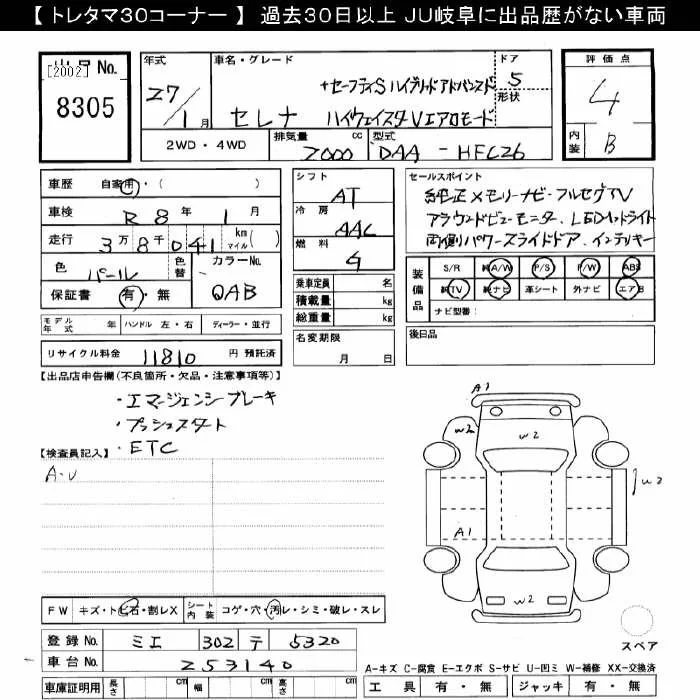 【 トレタマ30コーナー 】 過去30日以上 JU岐阜に出品歴がない車両
出品No.
[2002]
8305
年式
27/1月
車名・グレード
+セーフティS ハイブリッドアドバンスド
セレナ ハイウェイスターVエアロモード
ドア
5
形状
評価点
4
内装
B
2WD・4WD
排気量
2000 cc
型式
DAA - HFC26
車歴 自家用・( )
車検 R 8年 1月
走行 3万8千041 km マイル( )
色 パール 色替
カラーNo.
QAB
保証書 有・無
モデル年式 年 ハンドル 左・右 ディーラー・並行
リサイクル料金 11810 円 預託済
シフト
AT
冷房
AAC
燃料
乗車定員 名
積載量 kg
総重量 kg
名変期限
月 日
セールスポイント
純正メモリーナビ-フルセグTV
アラウンドビューモニター、LEDヘッドライト
両側パワースライドドア、インテリキー
装備品
S/R 純A/W P/S P/W ABS
純TV 純ナビ 革シート 外ナビ エアB
ナビ型番:
後日品
【出品店申告欄(不良箇所・欠品・注意事項等)】
・エマージェンシーブレーキ
・プッシュスタート
・ETC
【検査員記入】
A-U
A1
W2
W2
W2
A1
W2
FW キズ・トビ石・割レX シート内装 コゲ・穴・汚レ・シミ・破レ・スレ
登録No. ミエ 302 テ 5320
車台No. 253140
車庫証明用 長さ cm 幅 cm 高さ cm
スペア
A-キズ C-腐食 E-エクボ S-サビ U-凹ミ W-補修 XX-交換済
工具 有・無 ジャッキ 有・無